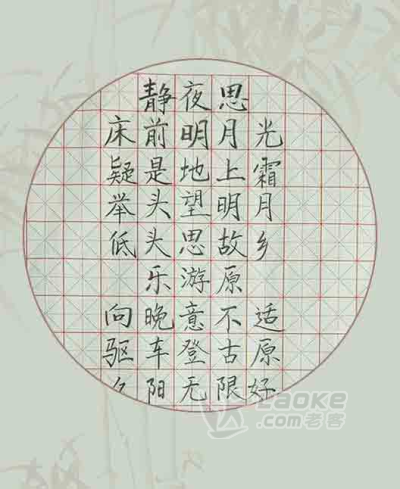 静夜思
床前明月光
疑是地上霜
举头望明月
低头思故乡
乐游原
向晚意不适
驱车登古原
夕阳无限好
Laoke
.com老客